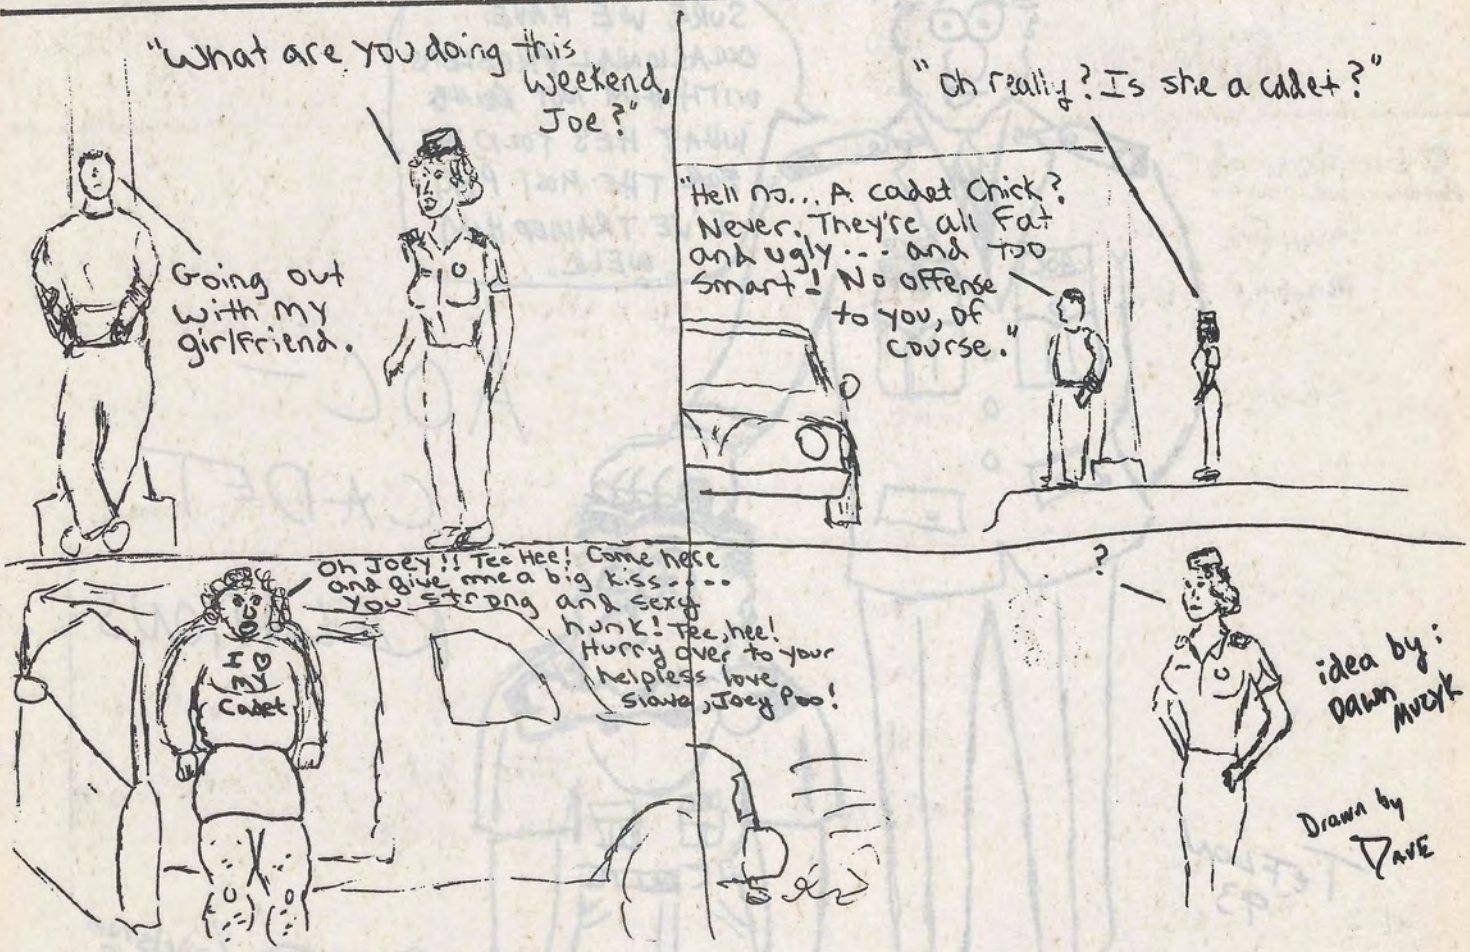 "What are you doing this
weekend,
Joe?"
Going out
with my
girlfriend.
"Oh really? Is she a cadet?"
"Hell no... A cadet Chick?
Never. They're all Fat
and ugly... and too
smart! No offense
to you, of
course."
Oh Joey!! Tee Hee! Come here
and give me a big kiss....
you strong and sexy
hunk! Tee, hee!
Hurry over to your
helpless love
slave, Joey Poo!
I ♡
my
Cadet
?
idea by:
Dawn
Muzyk
Drawn by
DAVE